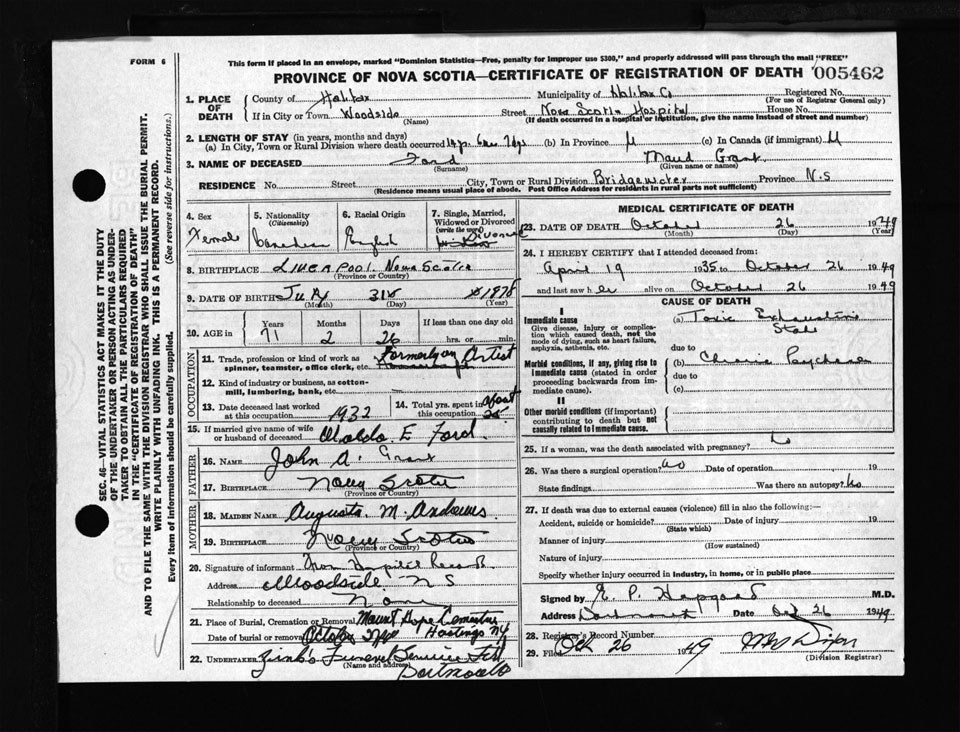 FORM 6
This form if placed in an envelope, marked "Dominion Statistics—Free, penalty for improper use $300," and properly addressed will pass through the mail "FREE"
PROVINCE OF NOVA SCOTIA—CERTIFICATE OF REGISTRATION OF DEATH 005462
SEC. 46—VITAL STATISTICS ACT MAKES IT THE DUTY
OF THE UNDERTAKER OR PERSON ACTING AS UNDER-
TAKER TO OBTAIN ALL THE PARTICULARS REQUIRED
IN THE "CERTIFICATE OF REGISTRATION OF DEATH"
AND TO FILE THE SAME WITH THE DIVISION REGISTRAR WHO SHALL ISSUE THE BURIAL PERMIT.
WRITE PLAINLY WITH UNFADING INK. THIS IS A PERMANENT RECORD.
Every item of information should be carefully supplied. (See reverse side for instructions.)
1. PLACE OF DEATH
County of Halifax Municipality of Halifax Co Registered No.
(For use of Registrar General only)
If in City or Town Woodside Street Nova Scotia Hospital House No.
(Name) (If death occurred in a hospital or institution, give the name instead of street and number)
2. LENGTH OF STAY (in years, months and days)
(a) In City, Town or Rural Division where death occurred 14 yr. 6 mo 7 dys (b) In Province (c) In Canada (if immigrant)
3. NAME OF DECEASED Ford Maud Grant
(Surname) (Given name or names)
RESIDENCE No. Street City, Town or Rural Division Bridgewater Province N.S
(Residence means usual place of abode. Post Office Address for residents in rural parts not sufficient)
4. Sex Female
5. Nationality (Citizenship) Canadian
6. Racial Origin English
7. Single, Married, Widowed or Divorced (write the word) Divorced
8. BIRTHPLACE Liverpool. Nova Scotia
(Province or Country)
9. DATE OF BIRTH July 31st 1878
(Month) (Day) (Year)
10. AGE in Years 71 Months 2 Days 26 If less than one day old hrs. or min.
OCCUPATION
11. Trade, profession or kind of work as spinner, teamster, office clerk, etc. Formerly an Artist
12. Kind of industry or business, as cotton-mill, lumbering, bank, etc.
13. Date deceased last worked at this occupation 1932
14. Total yrs. spent in this occupation about 25
15. If married give name of wife or husband of deceased Waldo E Ford.
FATHER
16. NAME John A. Grant
17. BIRTHPLACE Nova Scotia
(Province or Country)
MOTHER
18. MAIDEN NAME Augusta M. Andrews
19. BIRTHPLACE Nova Scotia
(Province or Country)
20. Signature of informant From Hospital Records
Address Woodside N S
Relationship to deceased None
21. Place of Burial, Cremation or Removal Mount Hope Cemetery
Date of burial or removal October Hastings NY
22. UNDERTAKER Zink's Funeral Service
(Name and address) Dartmouth
MEDICAL CERTIFICATE OF DEATH
23. DATE OF DEATH October 26 1949
(Month) (Day) (Year)
24. I HEREBY CERTIFY that I attended deceased from:
April 19 1935 to October 26 1949
and last saw her alive on October 26 1949
CAUSE OF DEATH
I
Immediate cause (a) Toxic Exhaustive State
Give disease, injury or complication which caused death, not the mode of dying, such as heart failure, asphyxia, asthenia, etc.
due to
Morbid conditions, if any, giving rise to immediate cause (stated in order proceeding backwards from immediate cause) (b) Chronic Psychosis
due to
(c)
II
Other morbid conditions (if important) contributing to death but not causally related to immediate cause.
25. If a woman, was the death associated with pregnancy?
26. Was there a surgical operation? No Date of operation 19
State findings Was there an autopsy? No
27. If death was due to external causes (violence) fill in also the following:—
Accident, suicide or homicide? Date of injury 19
(State which)
Manner of injury
(How sustained)
Nature of injury
Specify whether injury occurred in industry, in home, or in public place
Signed by E. P. Hapgood M.D.
Address Dartmouth Date Oct 26 1949
28. Registrar's Record Number
29. Filed Oct 26 1949
(Division Registrar)